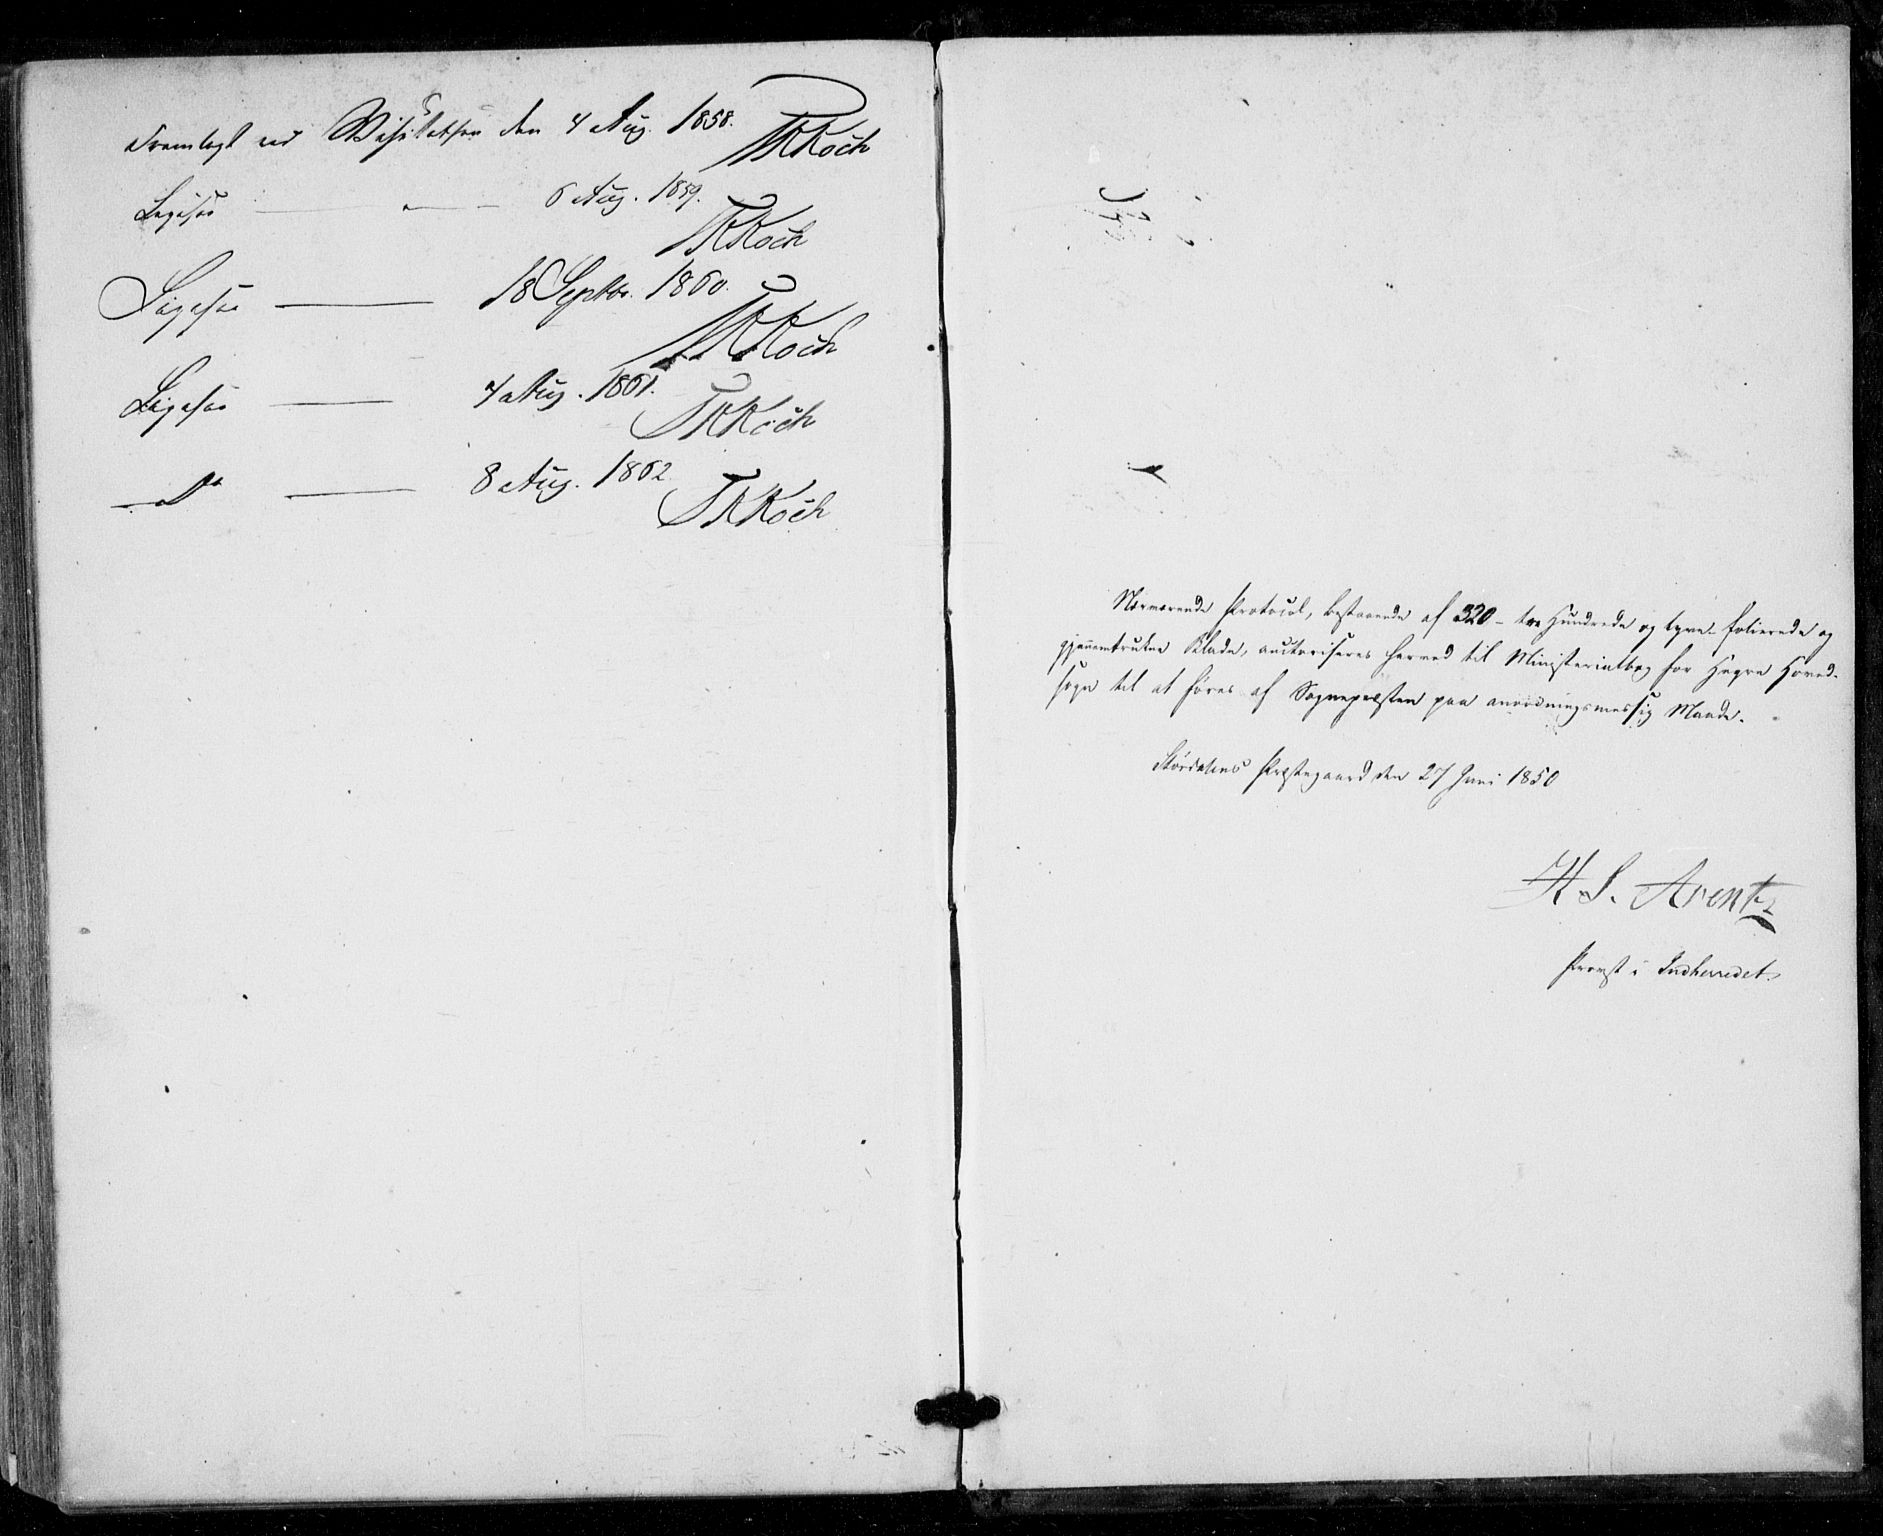 Fremlagt ved Visitatsen den 4 Aug. 1858. TRKoch
Ligesaa — " — 6 Aug. 1859. TRKoch
Ligesaa — 18 Septbr. 1860. TRKoch
Ligesaa — 4 Aug. 1861. TRKoch
— Do — 8 Aug. 1862 TRKoch
Nærværende Protocol, bestaaende af 320 - tre Hundrede og tyve - folierede og
gjennemtrukne Blade, auctoriseres herved til Ministerialbog for Hegre Hoved-
sogn til at føres af Sognepræsten paa anordningsmæssig Maade.
Størdalens Præstegaard den 27 Juni 1850
H S. Arentz
Provst i Indherredet.